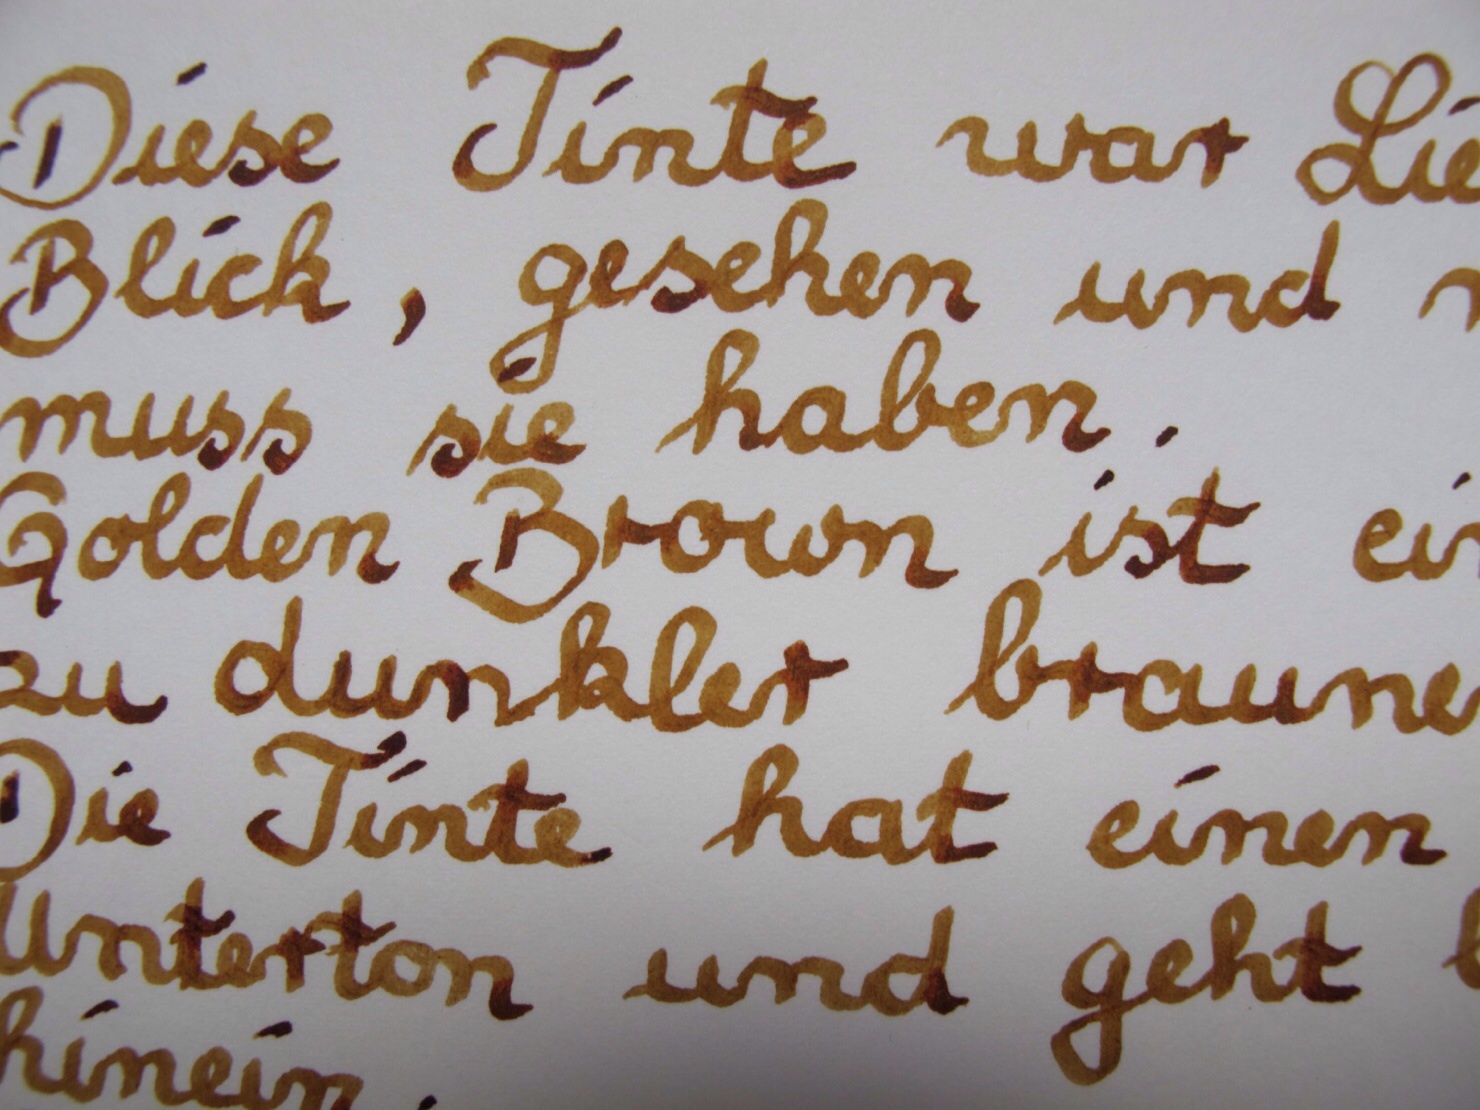 Diese Tinte war Lie
Blick, gesehen und
muss sie haben.
Golden Brown ist ein
zu dunkler brauner
Die Tinte hat einen
Unterton und geht
hinein.